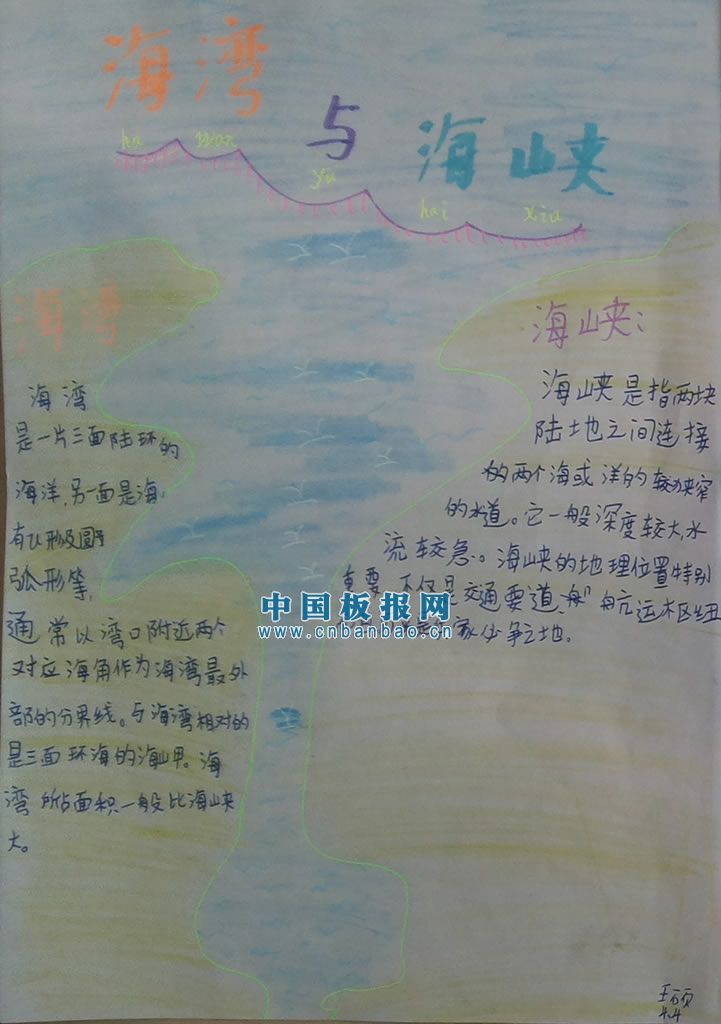 海湾
与 海峡
ha wan
yu
hai xia
海湾
海湾
是一片三面陆环的
海洋,另一面是海,
有U形及圆
弧形等,
通常以湾口附近两个
对应海角作为海湾最外
部的分界线。与海湾相对的
是三面环海的海岬。海
湾所占面积一般比海峡
大。
海峡:
海峡是指两块
陆地之间连接
的两个海或洋的较狭窄
的水道。它一般深度较大,水
流较急。海峡的地理位置特别
重要,不仅是交通要道,航运枢纽
家必争之地。
中国板报网
www.cnbanbao.cn
王硕
4.4